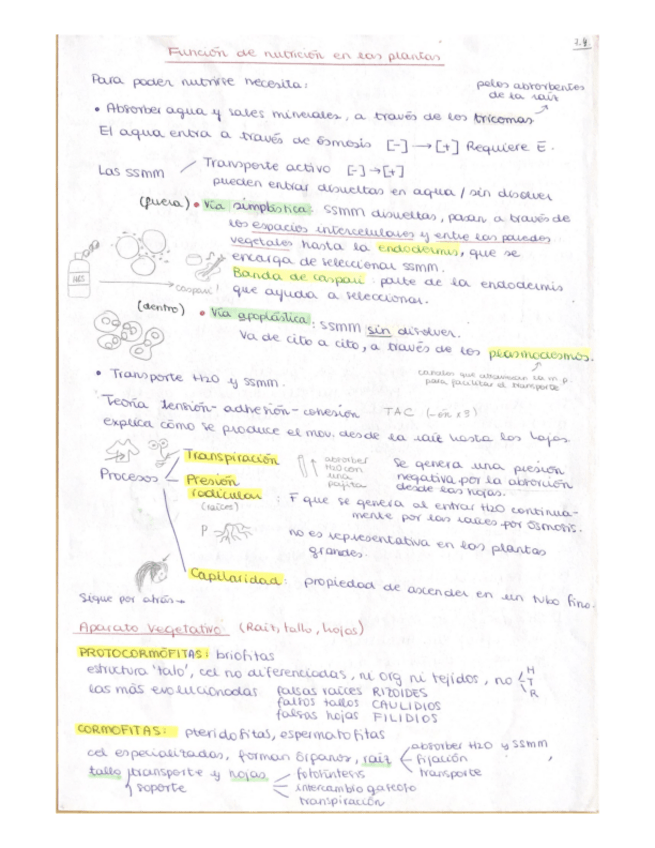 7.4.
Función de nutrición en las plantas
Para poder nutrirse necesita:
pelos absorbentes
de la raíz
• Absorber agua y sales minerales, a través de los tricomas
El agua entra a través de ósmosis [-] → [+] Requiere E.
Las SSMM
Transporte activo [-] → [+]
pueden entrar disueltas en agua / sin disolver
(fuera) • Vía simplástica: SSMM disueltas, pasan a través de
los espacios intercelulares y entre las paredes
vegetales hasta la endodermis, que se
encarga de seleccionar SSMM.
Banda de caspari: parte de la endodermis
que ayuda a seleccionar.
caspari!
(dentro) • Vía apoplástica: SSMM sin disolver.
Va de cito a cito, a través de los plasmodesmos.
canales que atraviesan la m.p.
para facilitar el transporte
• Transporte H2O y SSMM.
Teoría tensión-adhesión-cohesión TAC (-ón x3)
explica cómo se produce el mov. desde la raíz hasta las hojas.
Procesos
Transpiración
absorber
H2O con
una
pajita
Se genera una presión
negativa por la absorción
desde las hojas.
Presión
radicular
(raíces)
: F que se genera al entrar H2O continua-
mente por las raíces por ósmosis.
P
no es representativa en las plantas
grandes.
Capilaridad: propiedad de ascender en un tubo fino.
Sigue por atrás →
Aparato vegetativo: (Raíz, tallo, hojas)
PROTOCORMÓFITAS: briofitas
estructura 'talo', cel no diferenciadas, ni org ni tejidos, no H T R
las más evolucionadas falsas raíces RIZOIDES
falsos tallos CAULIDIOS
falsas hojas FILIDIOS
CORMOFITAS: pteridofitas, espermatofitas
cel especializadas, forman órganos, raíz
absorber H2O y SSMM
fijación
transporte
tallo transporte y hojas
soporte
fotosíntesis
intercambio gaseoso
transpiración